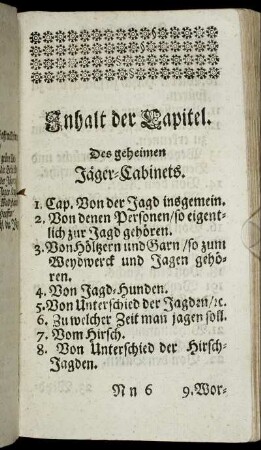 Inhalt der Capitel.
Des geheimen
Jäger-Cabinets.
1. Cap. Von der Jagd insgemein.
2. Von denen Personen/so eigent-
lich zur Jagd gehören.
3. Von Höltzern und Garn/so zum
Weydwerck und Jagen gehö-
ren.
4. Von Jagd-Hunden.
5. Von Unterschied der Jagden/ꝛc.
6. Zu welcher Zeit man jagen soll.
7. Vom Hirsch.
8. Von Unterschied der Hirsch-
Jagden.
Nn 6 9. Wor-